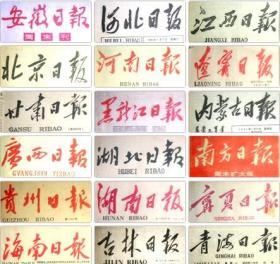 安徽日報
周末刊
河北日報
HEBEI RIBAO
江西日报
JIANGXI RIBAO
北京日报
河南日報
HENAN RIBAO
遼寧日報
LIAONING RIBAO
甘肃日報
GANSU RIBAO
黑龍江日報
内蒙古日報
廣西日報
GVANGJSIH YIZBAO
湖北日報
HUBEI RIBAO
南方日報
周末扩大版
贵州日報
GUIZHOU RIBAO
湖南日報
HUNAN RIBAO
寧夏日報
NINGXIA RIBAO
海南日報
吉林日報
JILIN RIBAO
青海日報
QINGHAI RIBAO